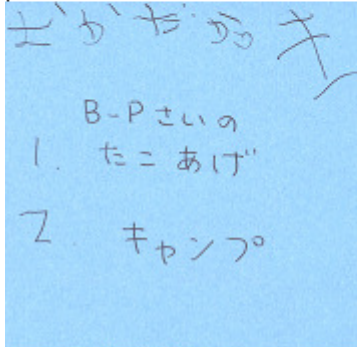 B-Pさいの
1. たこあげ
2 キャンプ